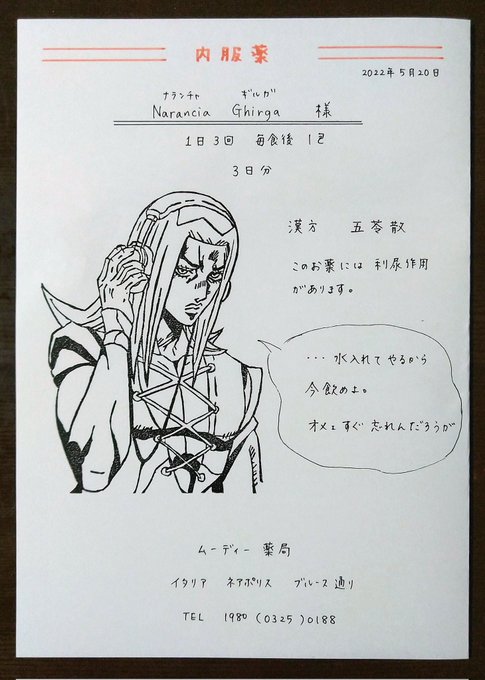 内服薬
2022年5月20日
ナランチャ ギルガ
Narancia Ghirga 様
1日3回 毎食後 1包
3日分
漢方 五苓散
このお薬には 利尿作用
があります。
・・・水入れて やるから
今飲めよ。
オメェすぐ 忘れんだろうが
ムーディー 薬局
イタリア ネアポリス ブルース通り
TEL 1980 (0325) 0188